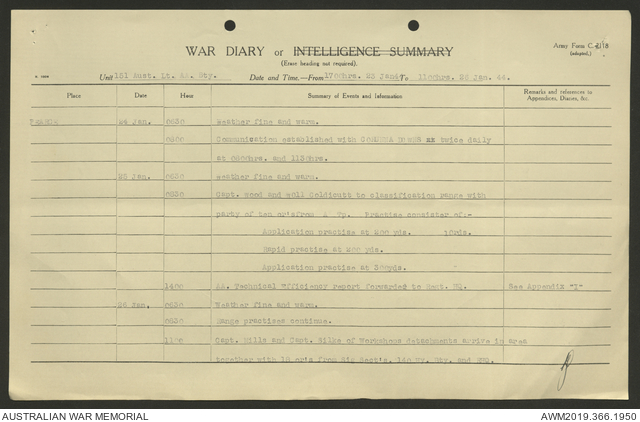 WAR DIARY or INTELLIGENCE SUMMARY
(Erase heading not required).
Army Form C. 2118
(adapted.)
Unit 151 Aust. Lt. AA. Bty. Date and Time.—From 1700hrs. 23 Jan44 To 1100hrs. 26 Jan. 44.
Place Date Hour Summary of Events and Information Remarks and references to
Appendices, Diaries, &c.
24 Jan. 0630 Weather fine and warm.
0800 Communication established with TOWER twice daily
at 0800hrs. and 1130hrs.
25 Jan. 0630 Weather fine and warm.
0830 Capt. Wood and WO11 Coldicutt to classification range with
party of ten oris from Tp. Practise consister of:-
Application practise at 200 yds. 10rds.
Rapid practise at 200 yds.
Application practise at 300yds.
1400 AA. Technical Efficiency report forwarded to Regt. HQ. See Appendix "1"
26 Jan. 0630 Weather fine and warm.
0830 Range practises continue.
1100 Capt. Mills and Capt. Wilke of Workshops detachments arrive in area
together with 18 oris from Sig Sect's. Hy. Bty. and
AUSTRALIAN WAR MEMORIAL
AWM2019.366.1950